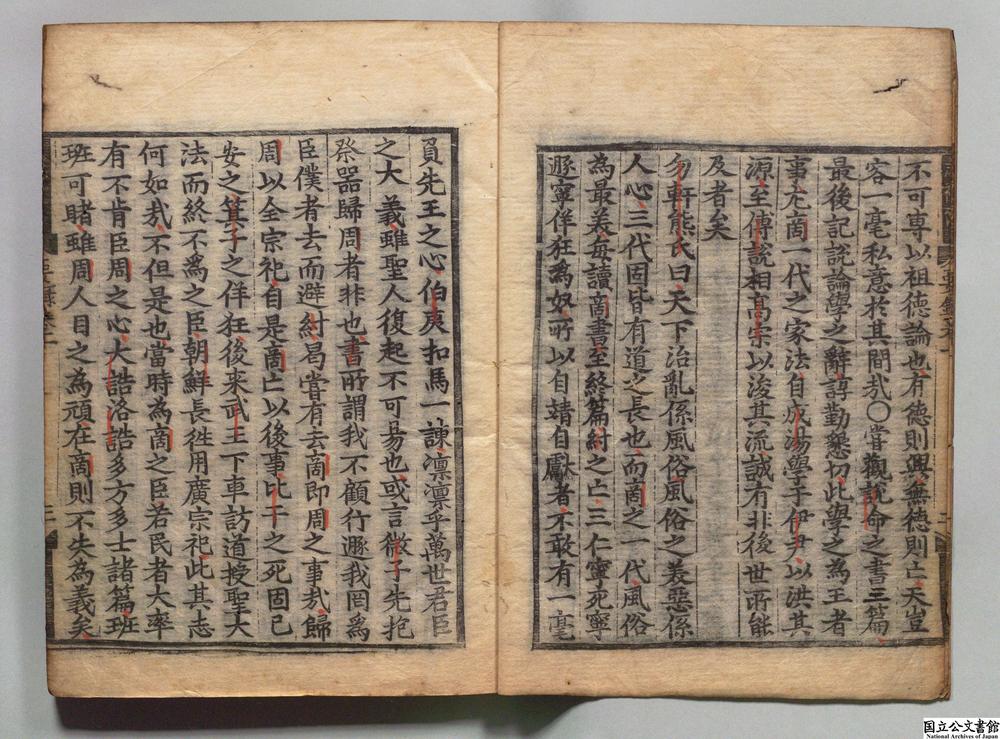 不可専以祖德論也有德則興無德則亡天豈
容一毫私意於其間㢤〇嘗觀說命之書三篇
最後記說論學之辭諄勤懇切此學之為王者
事尤商一代之家法自成湯學于伊尹以洪其
源至傅說相髙宗以浚其流誠有非後世所能
及者矣
勿軒熊氏曰天下治亂係風俗風俗之羙惡係
人心三代固皆有道之長也而商之一代風俗
為最美每讀商書至終篇紂之亡三仁寧死寧
遯寧佯狂為奴所以自靖自獻者不敢有一毫
負先王之心伯夷扣馬一諫凛凛乎萬世君臣
之大義雖聖人復起不可易也或言微子先抱
祭器歸周者非也書所謂我不顧行遯我罔為
臣僕者去而避紂曷嘗有去商即周之事㢤歸
周以全宗祀自是商亡以後事比干之死固已
安之箕子之佯狂後来武王下車訪道授聖大
法而終不為之臣朝鮮長徃用廣宗祀此其志
何如㢤不但是也當時為商之臣若民者大率
有不肯臣周之心大誥洛誥多方多士諸篇班
班可睹雖周人目之為頑在商則不失為義矣
國立公文書館
National Archives of Japan